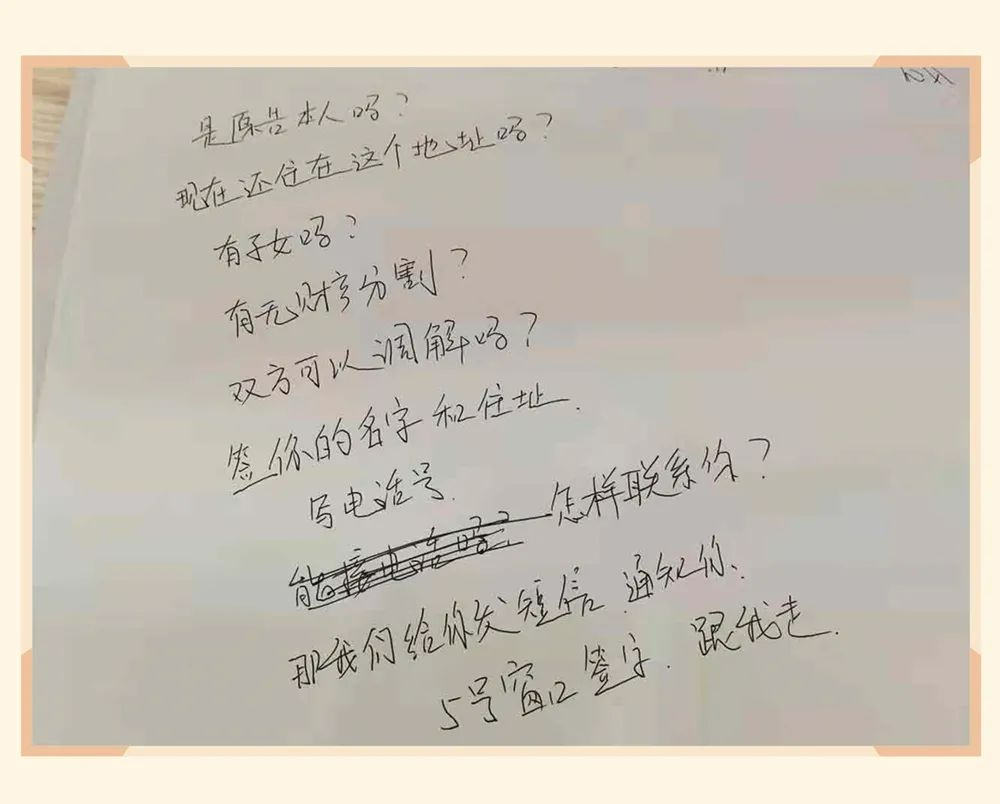 是原告本人吗？
现在还住在这个地址吗？
有子女吗？
有无财产分割？
双方可以调解吗？
签你的名字和住址.
写电话号.
能接电话吗？ 怎样联系你？
那我们给你发短信 通知你、
5号窗口签字. 跟我走.